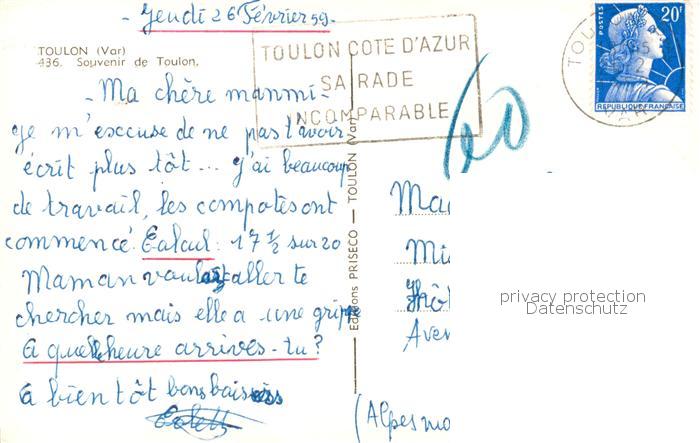 - Jeudi 26 Février 59.-
TOULON (Var)
436. Souvenir de Toulon.
TOULON COTE D'AZUR
SA RADE
INCOMPARABLE
POSTES
20F
REPUBLIQUE FRANÇAISE
60
- Ma chère manmi -
Je m'escuse de ne pas t'avoir
écrit plus tôt... j'ai beaucoup
de travail, les compotes ont
commencé. Calcul: 17 ½ sur 20
Maman voulait aller te
chercher mais elle a une grippe
A quelle heure arrives-tu?
A bientôt bons baisers
Colette
Editions PRISECO — TOULON (Var)
Ma
Mi
Hôt
Aven
(Alpes mo
privacy protection
Datenschutz